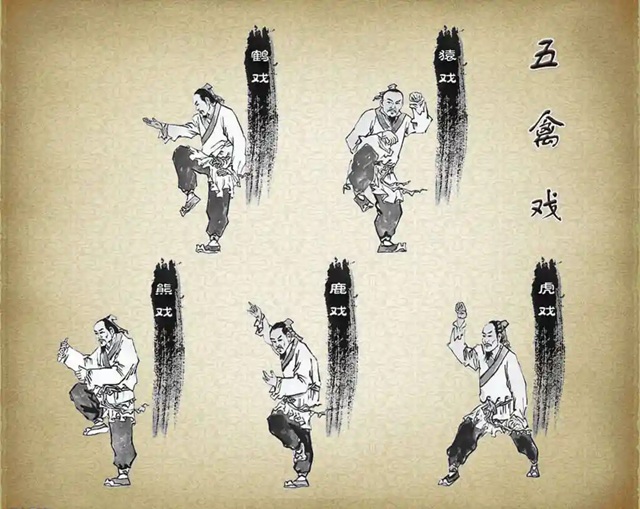 五禽戏
猿戏
鹤戏
虎戏
鹿戏
熊戏